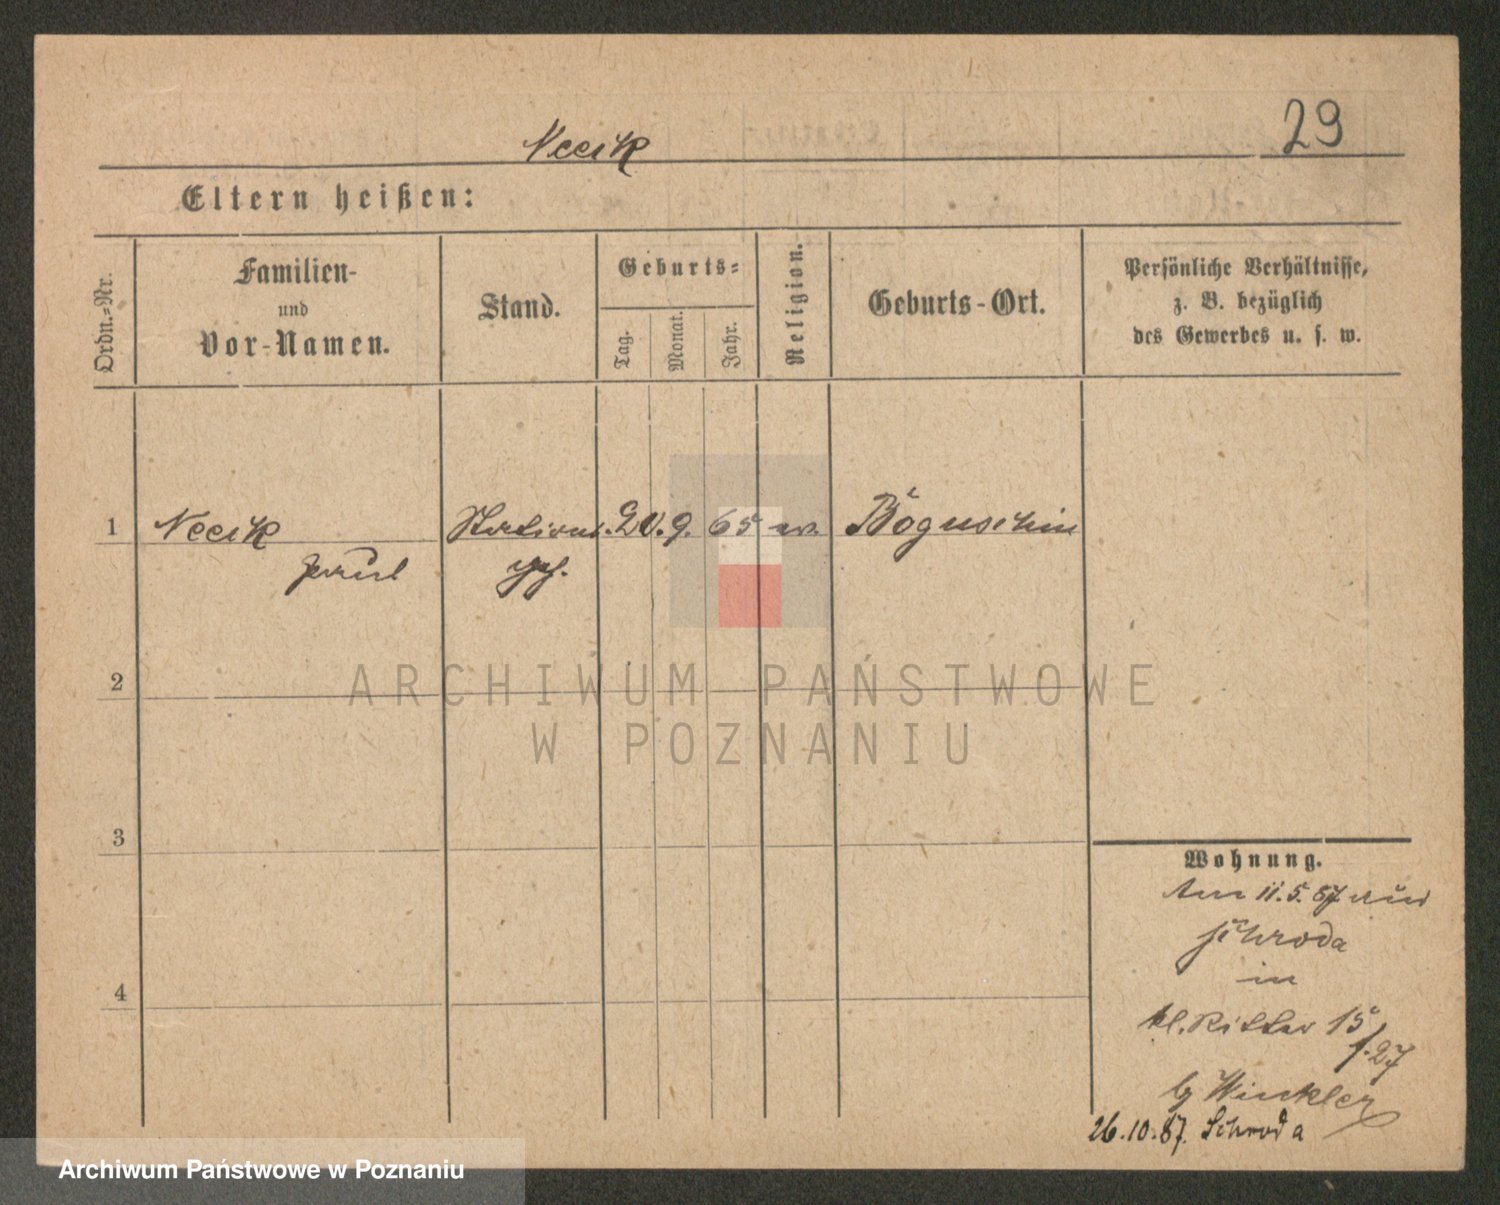 Necik
29
Eltern heißen:
Ordn.-Nr.
Familien-
und
Vor-Namen.
Stand.
Geburts-
Tag.
Monat.
Jahr.
Religion.
Geburts-Ort.
Persönliche Verhältnisse,
z. B. bezüglich
des Gewerbes u. s. w.
1 Necik 20. 9. 65 ev. Boguschin
Paul
2
3
4
Wohnung.
Am 11. 5. 87 aus
Schroda
in
kl. Ritter 15
f. 27
b/ Winkler
26.10.87. Schroda
ARCHIWUM PAŃSTWOWE
W POZNANIU
Archiwum Państwowe w Poznaniu